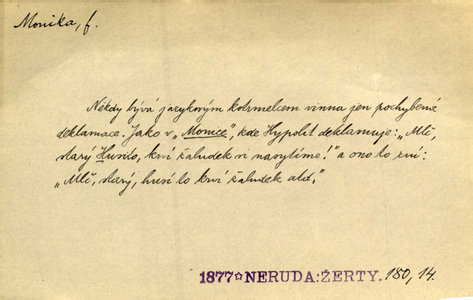 Monika, f.
Někdy bývá jazykovým kotrmelcem vinna jen pochybená
deklamace. Jako v „Monice", kde Hypolit deklamuje: „Mlč,
starý Hunďo, krví žaludek si nasytíme!" a ono to zní:
„Mlč, starý, husí to krví žaludek atd."
1877☆NERUDA: ŽERTY. 180, 14.